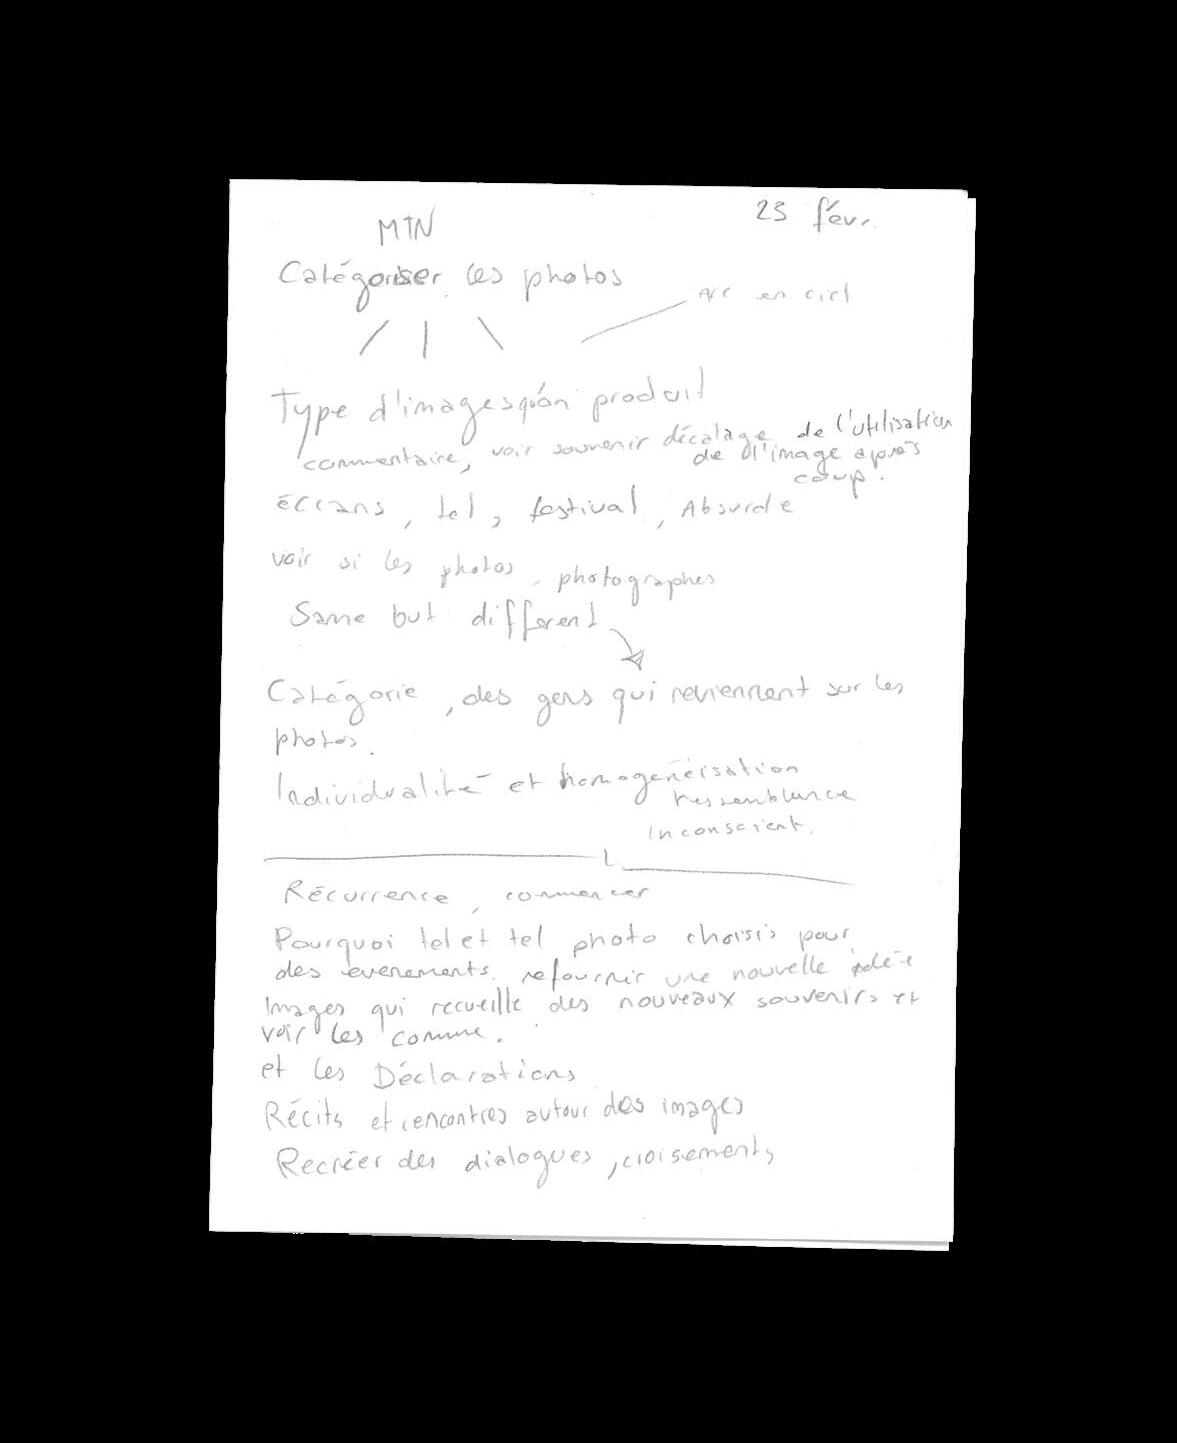 MTN
23 févr.
Catégoriser les photos
Arc en ciel
Type d'images qu'on produit
commentaire, voir souvenir décalage de l'utilisation
de l'image après
coup.
écrans, tel, festival, Absurde
voir si les photos, photographes
Same but different
Catégorie, des gens qui reviennent sur les
photos.
Individualité et homogénéisation
ressemblance
inconscient.
Récurrence, commencer
Pourquoi tel et tel photo choisis pour
des évenements. refournir une nouvelle idée
Images qui recueille des nouveaux souvenirs et
voir les comme.
et les Déclarations
Récits et rencontres autour des images
Recréer des dialogues, croisements